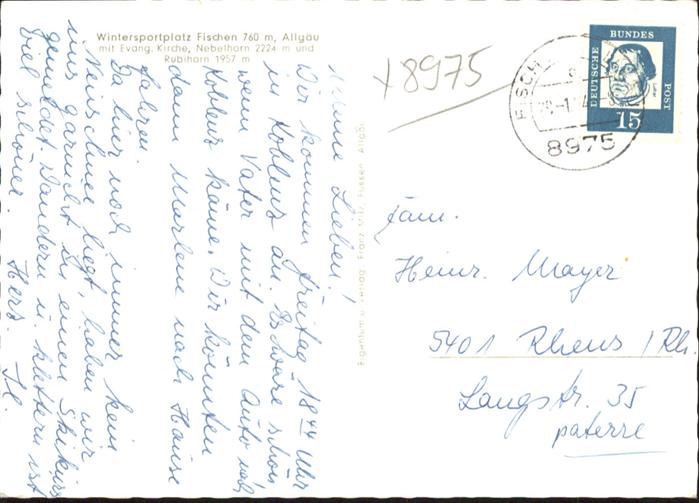 Wintersportplatz Fischen 760 m, Allgäu
mit Evang. Kirche, Nebelhorn 2224 m und
Rubihorn 1957 m
Meine Lieben!
Wir kommen Freitag 18⁴⁴ Uhr
in Koblenz an. Es wäre schön
wenn Vater mit dem Auto nach
Koblenz käme. Wir könnten
dann Marlene nach Hause
fahren.
Da hier noch immer kein
Neuschnee liegt, haben wir
uns garnicht zu einen Skikurs
gemeldet. Wandern u. klettern ist
viel schöner. Herz.
Eigentum u. Verlag Franz Milz, Füssen Allgäu
8975
DEUTSCHE
BUNDES
POST
15
FISCH
8975
Fam.
Heinr. Mayer
5401 Rhens / Rh.
Langstr. 35
paterre